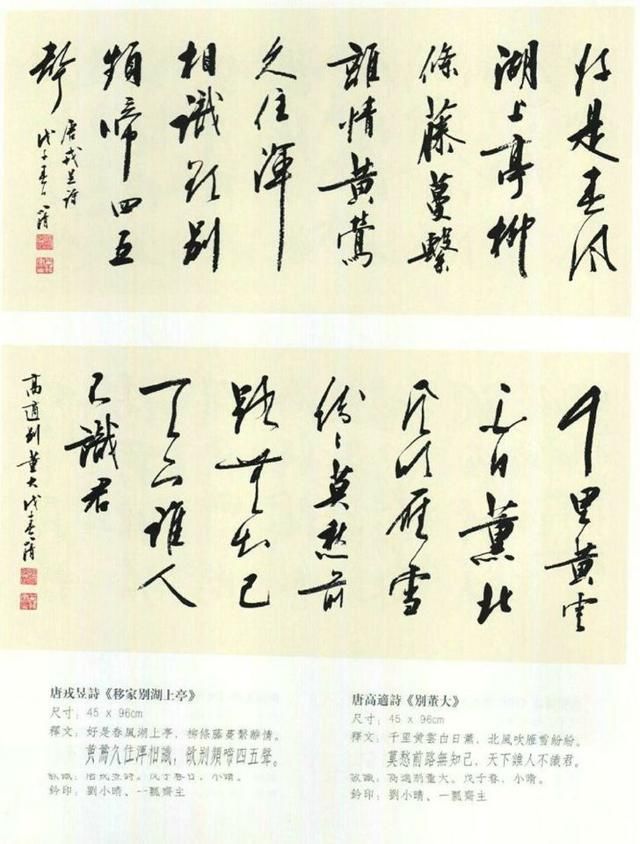 好是春風
湖上亭柳
條藤蔓繫
離情黄鶯
久住渾
相識欲别
頻啼四五
聲
唐戎昱詩
戊子春日
千里黄雲
白日薰北
風吹雁雪
紛〻莫愁前
路無知己
天下誰人
不識君
高適別董大戊子春
唐戎昱詩《移家別湖上亭》
尺寸：45 x 96cm
釋文：好是春風湖上亭，柳條藤蔓繫離情。
黄鶯久住渾相識，欲別頻啼四五聲。
款識：唐戎昱詩。戊子春日，小晴。
鈐印：劉小晴、一瓢齋主
唐高適詩《別董大》
尺寸：45 x 96cm
釋文：千里黄雲白日薰，北風吹雁雪紛紛。
莫愁前路無知己，天下誰人不識君。
款識：高適別董大。戊子春，小晴。
鈐印：劉小晴、一瓢齋主